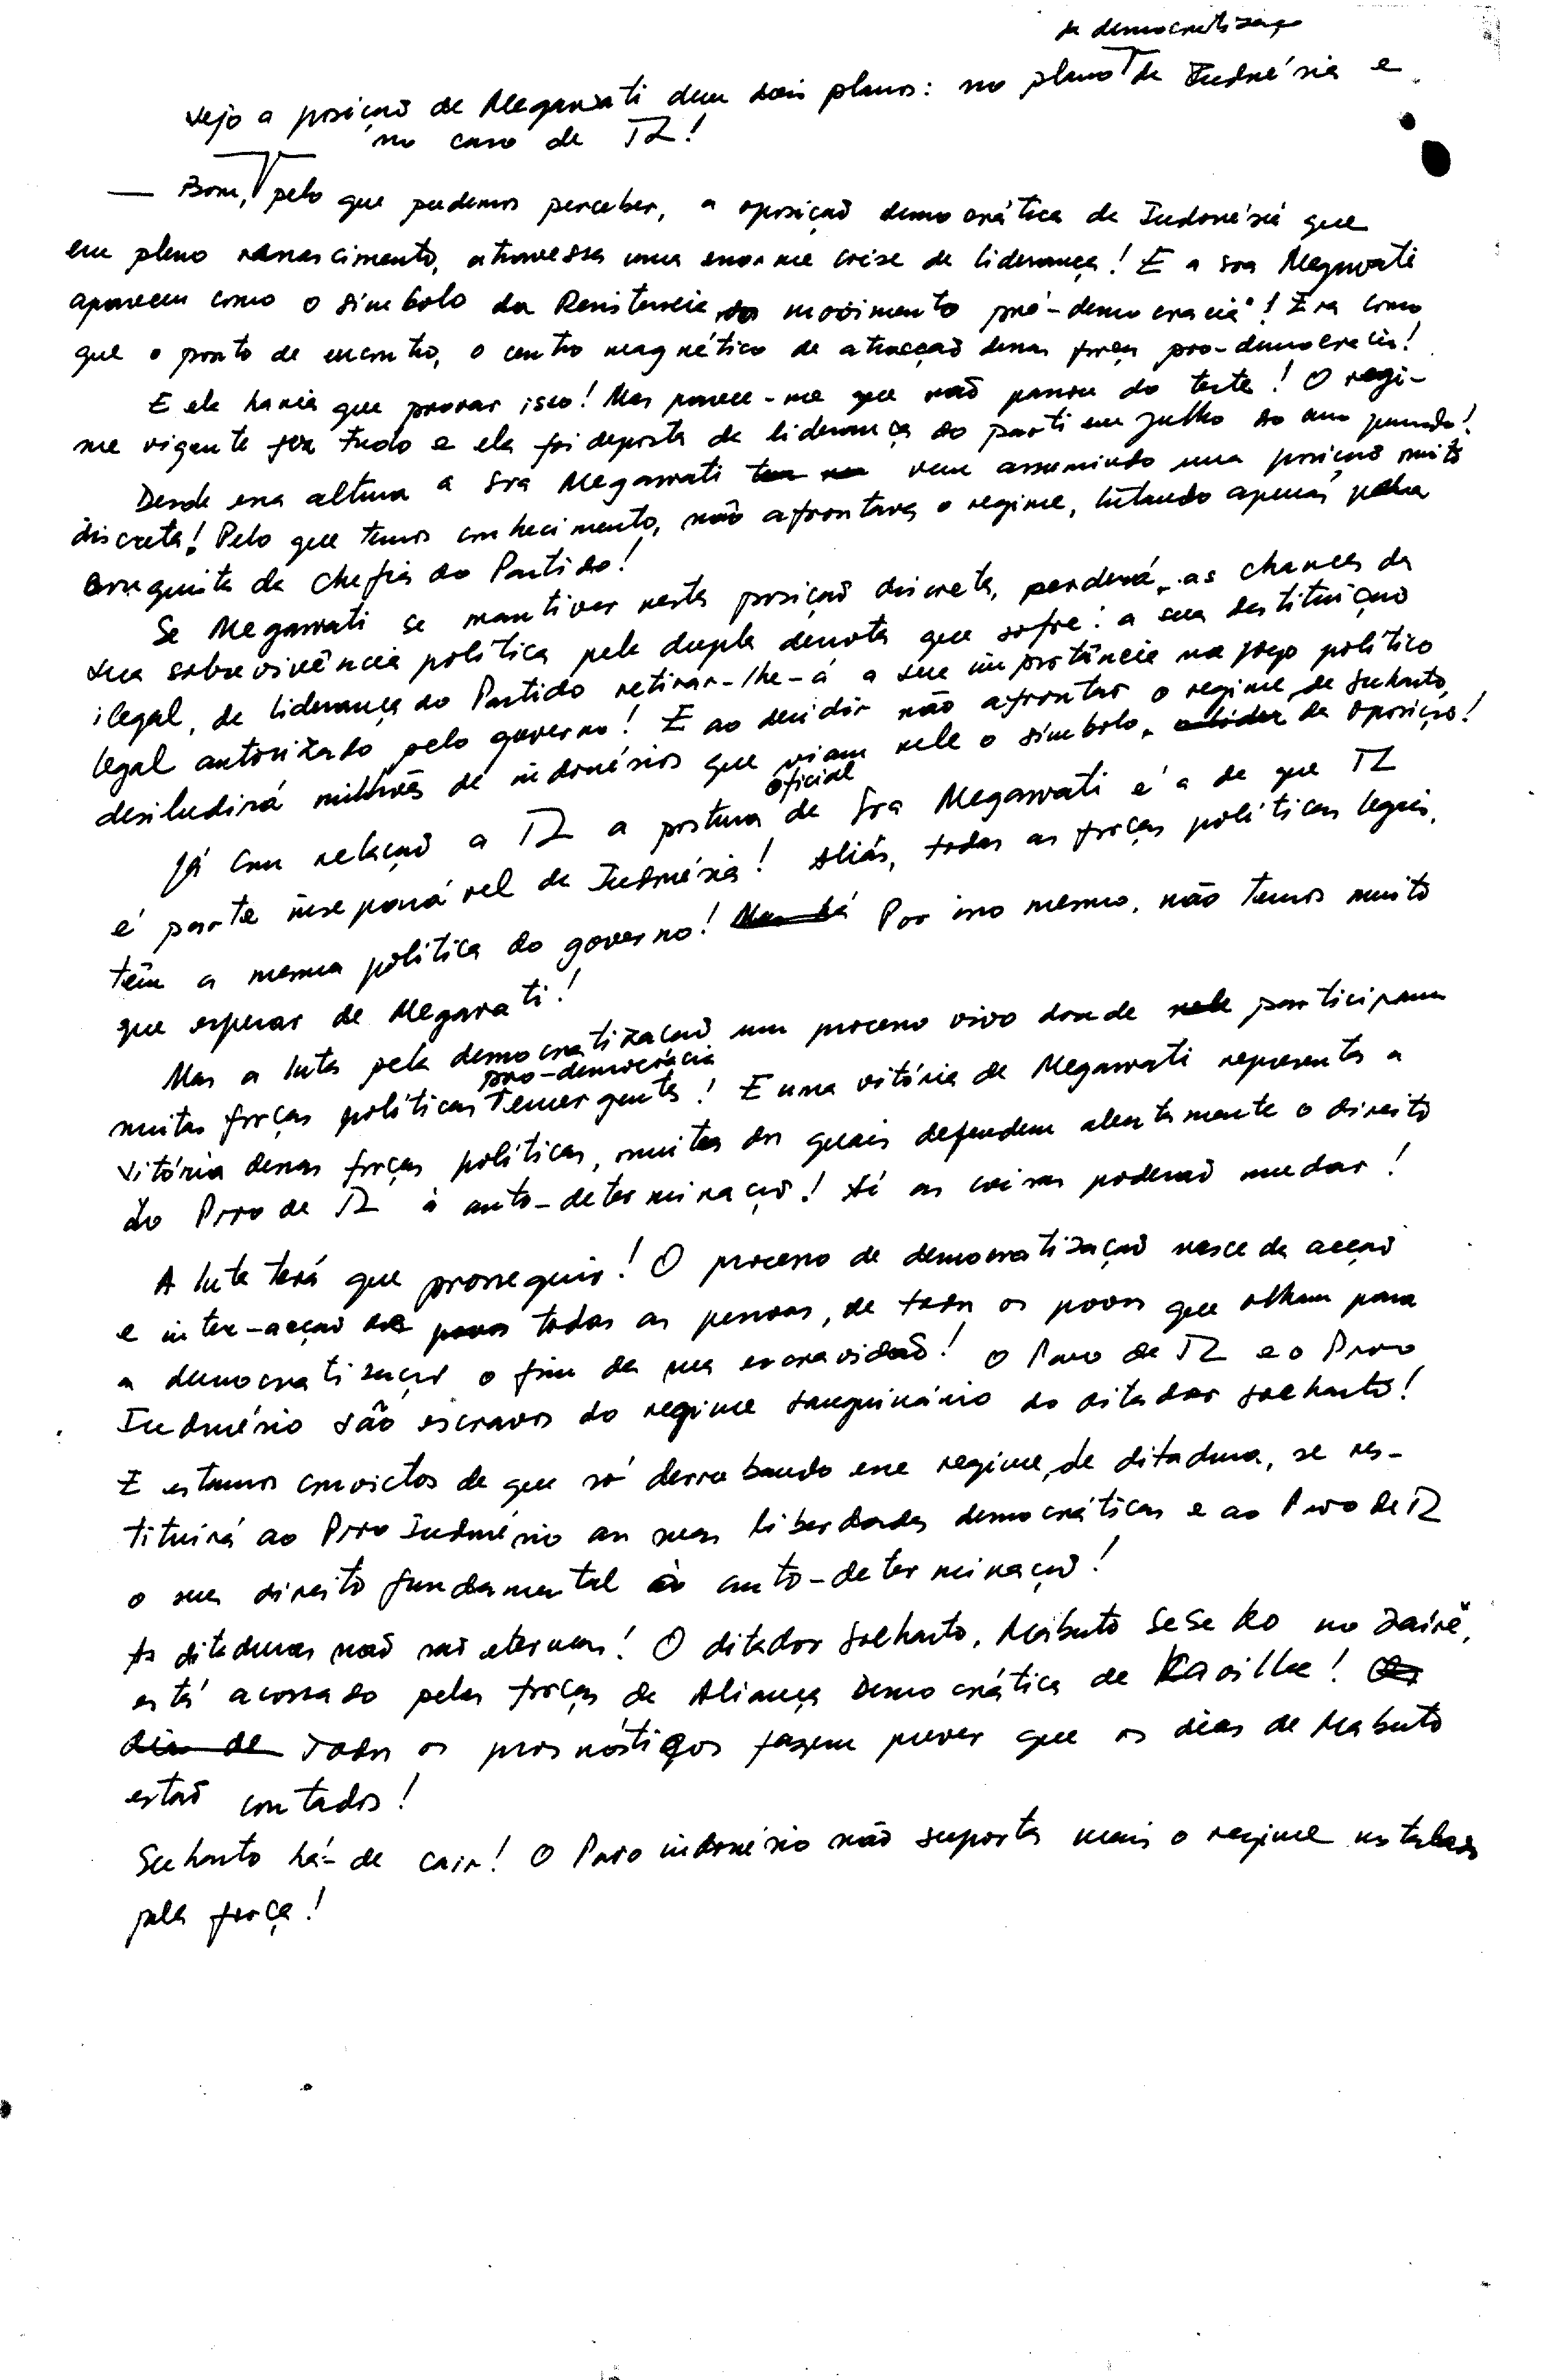 da democratização
Vejo a posição de Megawati dum dois planos: no plano da Indonésia e
no caso de TL!
— Bom, pelo que pudemos perceber, a oposição democrática da Indonésia que
em pleno renascimento, atravessa uma enorme crise de liderança! E a sra Megawati
apareceu como o símbolo da Resistencia do movimento pró-democracia"! Era como
que o ponto de encontro, o centro magnético de atracção dessas forças pro-democracia!
E ela havia que provar isso! Mas parece-me que não passou do teste! O regi-
me vigente fez tudo e ela foi deposta da liderança do parti em Julho do ano passado!
Desde essa altura a Sra Megawati vem assumindo uma posição muito
discreta! Pelo que temos conhecimento, não afrontava o regime, lutando apenas pela
conquista da Chefia do Partido!
Se Megawati se mantiver nesta posição discreta, perderá as chances da
sua sobrevivência política pela dupla derrota que sofre: a sua destituição
ilegal, da liderança do Partido retirar-lhe-á a sua importância no jogo político
legal autorizado pelo governo! E ao decidir não afrontar o regime de Suharto,
desiludirá milhões de indonésios que viam nela o símbolo, a líder da oposição!
oficial
Já com relação a TL a postura da Sra Megawati é a de que TL
é parte inseparável da Indonésia! Aliás, todas as forças políticas legais,
têm a mesma política do governo! Por isso mesmo, não temos muito
que esperar de Megawati!
Mas a luta pela democratização um processo vivo donde participam
pro-democracia
muitas forças políticas emergentes! E uma vitória de Megawati representa a
vitória dessas forças políticas, muitas das quais defendem abertamente o direito
do Povo de TL à auto-determinação! Aí as coisas poderão mudar!
A luta terá que prosseguir! O processo de democratização nasce da acção
e inter-acção de todas as pessoas, de todos os povos que olham para
a democratização o fim da sua escravidão! O Povo de TL e o Povo
Indonésio são escravos do regime sanguinário do ditador Soeharto!
E estamos convictos de que só derrubando esse regime de ditadura, se res-
tituirá ao Povo Indonésio as suas liberdades democráticas e ao Povo de TL
o seu direito fundamental à auto-determinação!
As ditaduras não são eternas! O ditador Soeharto, Mobuto Sese Ko no Zaire,
está acossado pelas forças da Aliança Democrática de Kabilla!
Todos os prognósticos fazem prever que os dias de Mabuto
estão contados!
Suharto há-de cair! O Povo indonésio não suporta mais o regime
pela força!